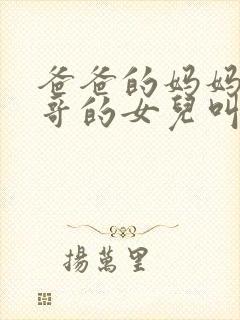 爸爸的妈妈
哥的女兒叫
揚萬里